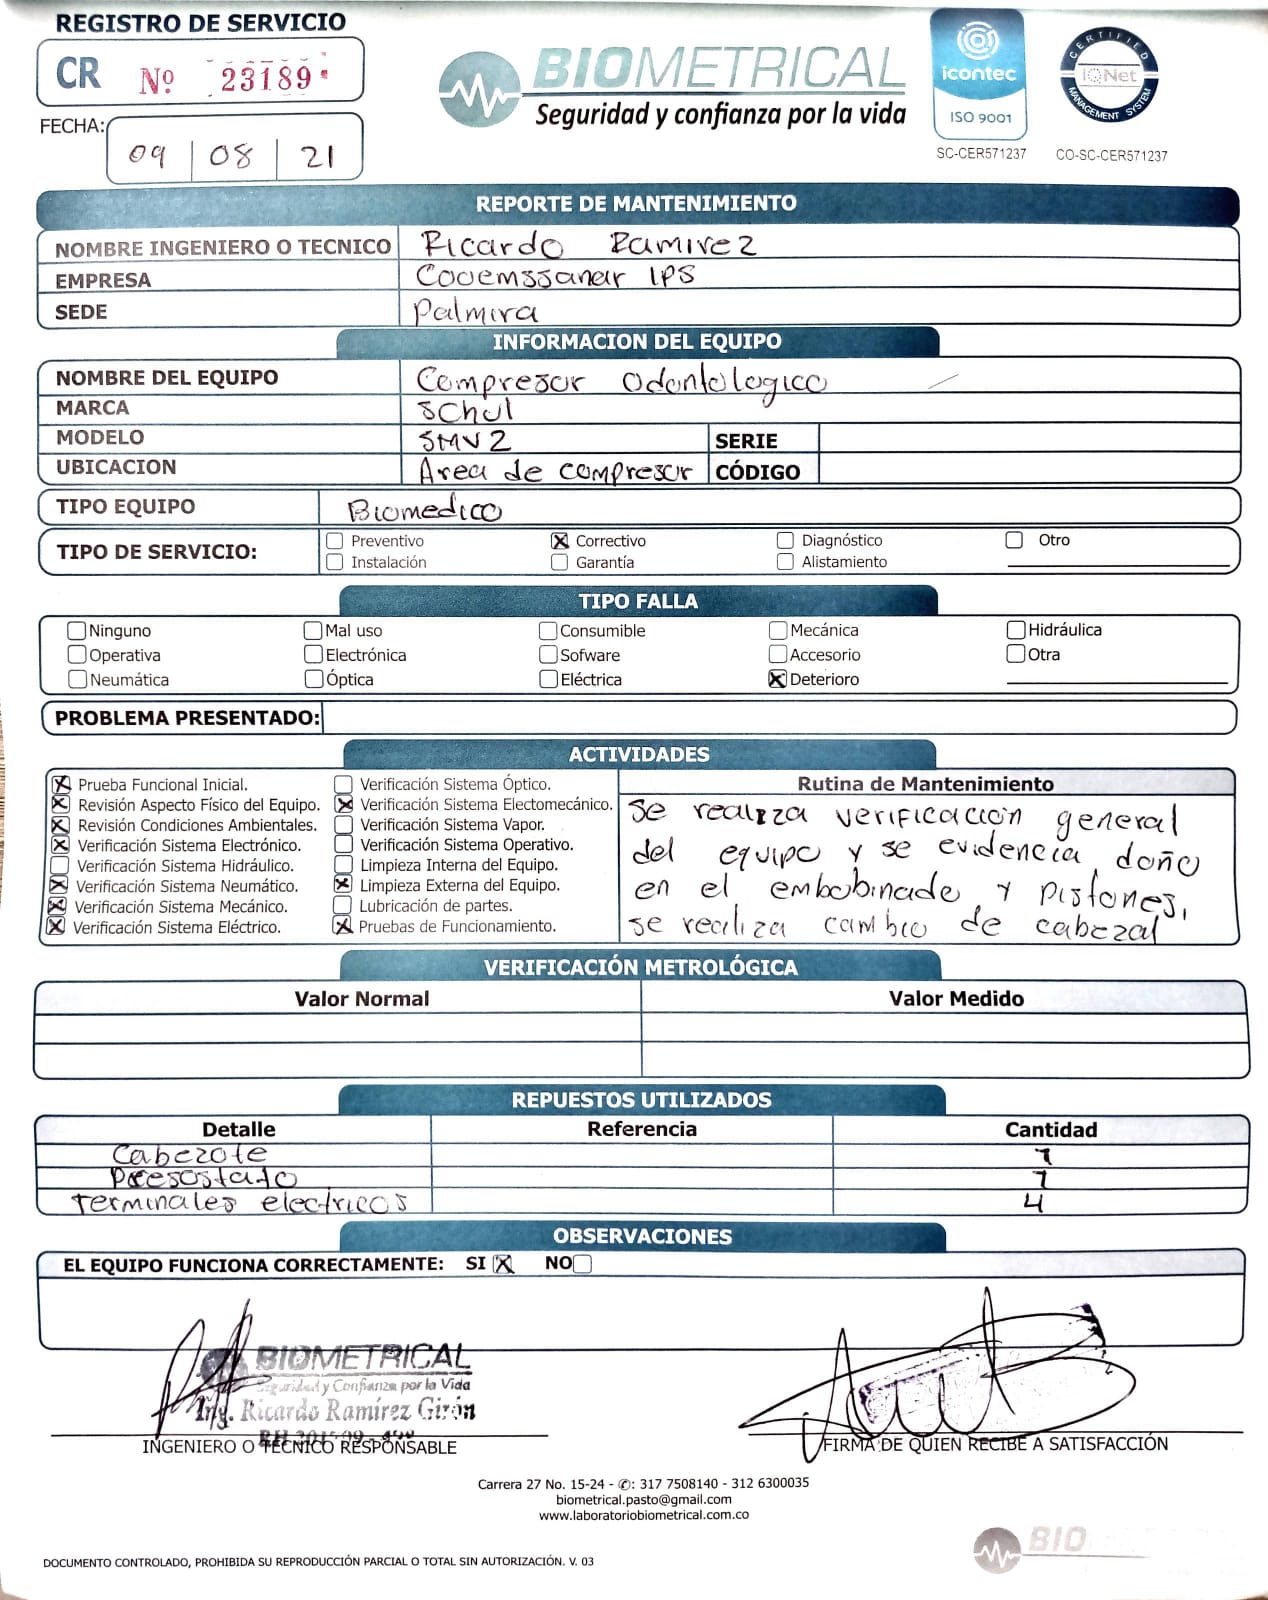 REGISTRO DE SERVICIO
CR Nº 23189
FECHA: 09 | 08 | 21
BIOMETRICAL
Seguridad y confianza por la vida
icontec
ISO 9001
SC-CER571237
CERTIFIED
IQNet
MANAGEMENT SYSTEM
CO-SC-CER571237
REPORTE DE MANTENIMIENTO
NOMBRE INGENIERO O TECNICO Ricardo Ramirez
EMPRESA Cooemssanar IPS
SEDE Palmira
INFORMACION DEL EQUIPO
NOMBRE DEL EQUIPO Compresor Odontologico
MARCA SChul
MODELO SMV2 SERIE
UBICACION Area de compresor CÓDIGO
TIPO EQUIPO Biomedico
TIPO DE SERVICIO: Preventivo Correctivo Diagnóstico Otro
Instalación Garantía Alistamiento
TIPO FALLA
Ninguno Mal uso Consumible Mecánica Hidráulica
Operativa Electrónica Sofware Accesorio Otra
Neumática Óptica Eléctrica Deterioro
PROBLEMA PRESENTADO:
ACTIVIDADES
Prueba Funcional Inicial.
Revisión Aspecto Físico del Equipo.
Revisión Condiciones Ambientales.
Verificación Sistema Electrónico.
Verificación Sistema Hidráulico.
Verificación Sistema Neumático.
Verificación Sistema Mecánico.
Verificación Sistema Eléctrico.
Verificación Sistema Óptico.
Verificación Sistema Electomecánico.
Verificación Sistema Vapor.
Verificación Sistema Operativo.
Limpieza Interna del Equipo.
Limpieza Externa del Equipo.
Lubricación de partes.
Pruebas de Funcionamiento.
Rutina de Mantenimiento
Se realiza verificación general
del equipo y se evidencia daño
en el embobinado y pistones,
se realiza cambio de cabezal
VERIFICACIÓN METROLÓGICA
Valor Normal Valor Medido
REPUESTOS UTILIZADOS
Detalle Referencia Cantidad
Cabezote 1
Presostado 1
Terminales electricos 4
OBSERVACIONES
EL EQUIPO FUNCIONA CORRECTAMENTE: SI NO
BIOMETRICAL
Seguridad y Confianza por la Vida
Ing. Ricardo Ramírez Girón
INGENIERO O TECNICO RESPONSABLE
FIRMA DE QUIEN RECIBE A SATISFACCIÓN
Carrera 27 No. 15-24 - ✆: 317 7508140 - 312 6300035
biometrical.pasto@gmail.com
www.laboratoriobiometrical.com.co
DOCUMENTO CONTROLADO, PROHIBIDA SU REPRODUCCIÓN PARCIAL O TOTAL SIN AUTORIZACIÓN. V. 03